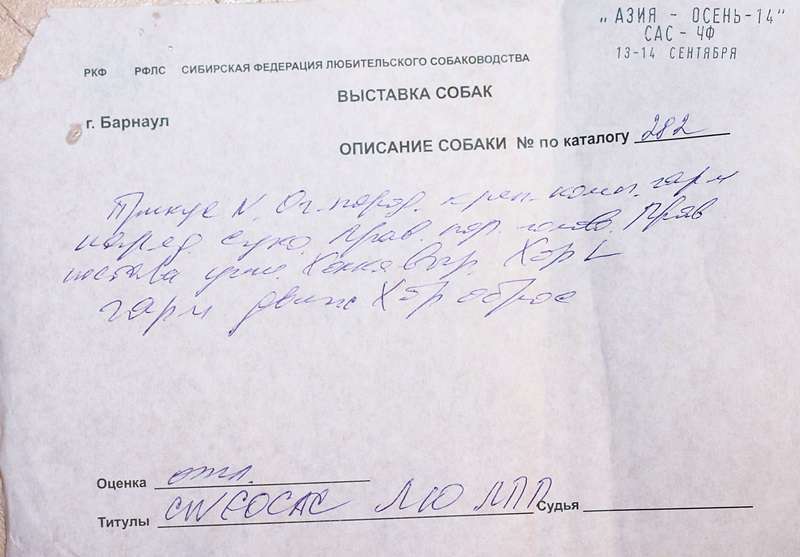 „АЗИЯ - ОСЕНЬ-14"
САС - ЧФ
13-14 СЕНТЯБРЯ
РКФ РФЛС СИБИРСКАЯ ФЕДЕРАЦИЯ ЛЮБИТЕЛЬСКОГО СОБАКОВОДСТВА
ВЫСТАВКА СОБАК
г. Барнаул
ОПИСАНИЕ СОБАКИ № по каталогу 282
Прикус N. От. пород. креп. комп. гарм
Прав.
постава ушей Хор L
гарм движ Хор оброс
Оценка отл.
Титулы CW ЮСАС ЛЮ ЛПП Судья